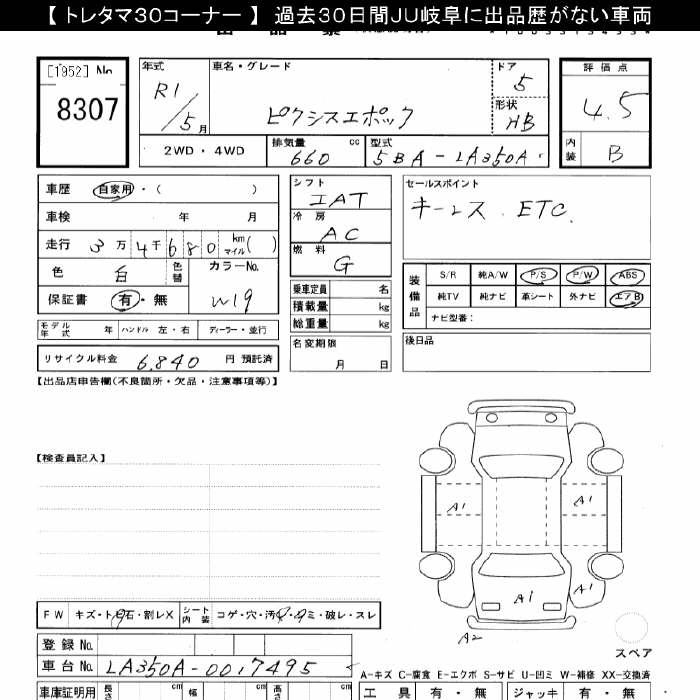 【 トレタマ30コーナー 】 過去30日間JU岐阜に出品歴がない車両
[1952] No.
8307
年式
R1/5月
車名・グレード
ピクシスエポック
ドア
5
形状
HB
評価点
4.5
内装
B
2WD・4WD
排気量
660
cc
型式
5BA-LA350A
車歴
自家用・( )
車検 年 月
走行 3万4千680 km マイル( )
色 白 色替
カラーNo.
W19
保証書 有・無
モデル年式 年 ハンドル 左・右 ディーラー・並行
リサイクル料金 6,840 円 預託済
シフト
IAT
冷房
AC
燃料
G
乗車定員 名
積載量 kg
総重量 kg
名変期限
月 日
セールスポイント
キーレス ETC.
装備品
S/R 純A/W P/S P/W ABS
純TV 純ナビ 革シート 外ナビ エアB
ナビ型番:
後日品
【出品店申告欄(不良箇所・欠品・注意事項等)】
【検査員記入】
A1
A1
A1
A1
A2
スペア
FW キズ・ト石・割レX シート内装 コゲ・穴・汚レ・シミ・破レ・スレ
登録 No.
車台 No. LA350A-0017495
A-キズ C-腐食 E-エクボ S-サビ U-凹ミ W-補修 XX-交換済
車庫証明用 長さ cm 幅 cm 高さ cm
工具 有・無 ジャッキ 有・無